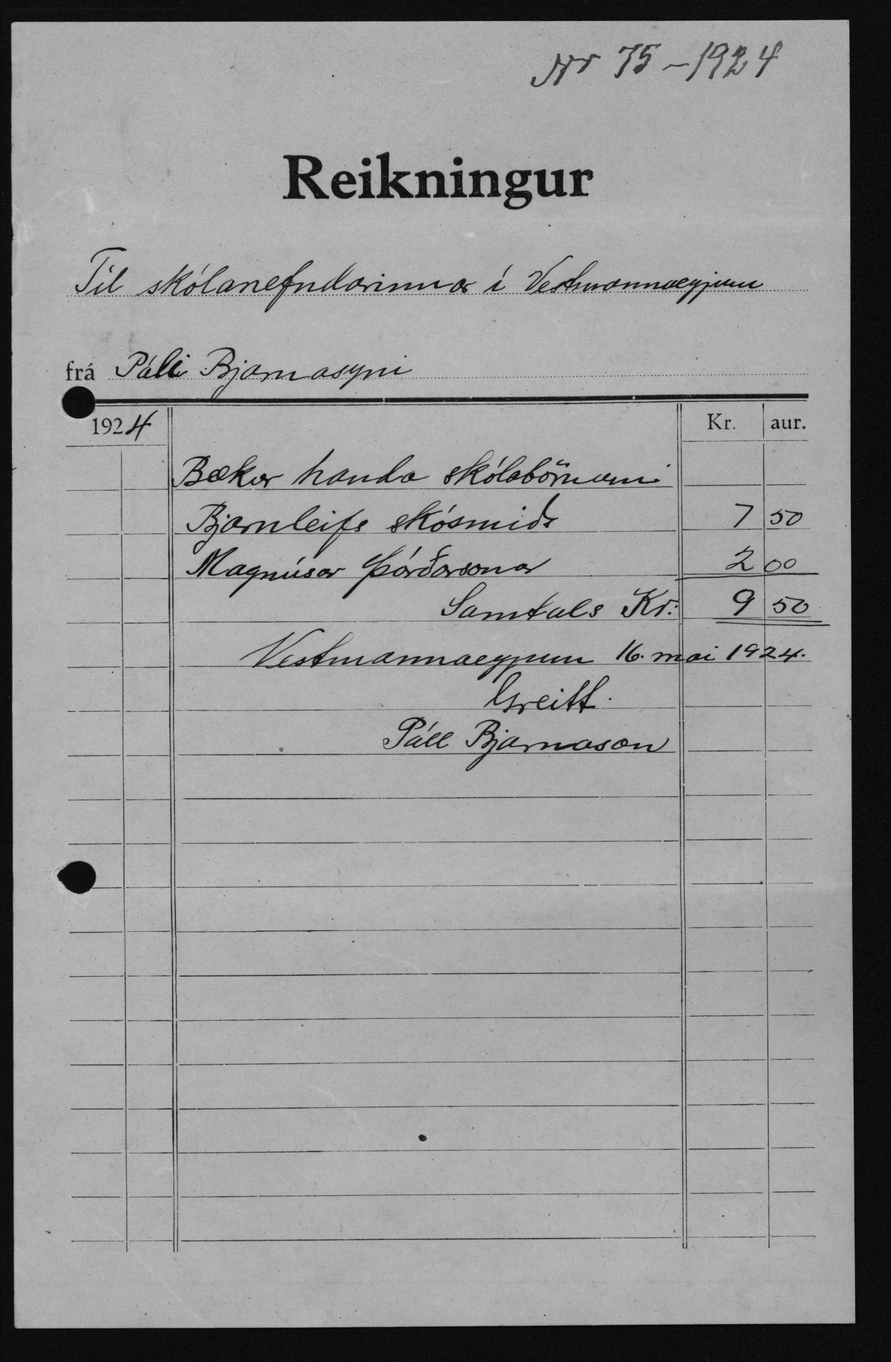 Nr 75 - 1924
Reikningur
Til skólanefndarinnar í Vestmannaeyjum
frá Páli Bjarnasyni
1924 Kr. aur.
Bækur handa skólabörnum
Bjarnleifs skósmiðs 7 50
Magnúsar Þórðarsonar 2 00
Samtals Kr: 9 50
Vestmannaeyjum 16. mai 1924.
Greitt.
Páll Bjarnason